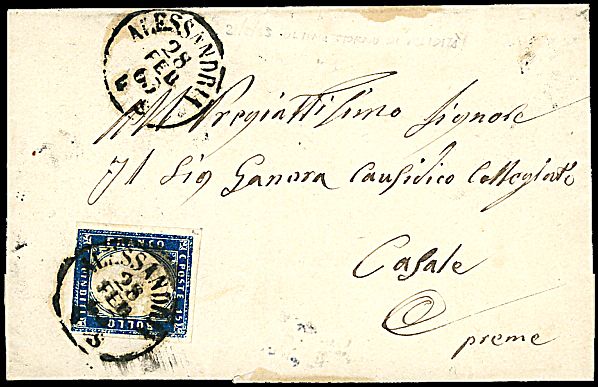 ALESSANDRIA
28
FEB
63
All Pregiattissimo Signore
Il Sig Ganora Causidico Collegiato
Casale
preme
C. POSTE 15
BOLLO
QUINDICI
ALESSANDRIA
28
FEB